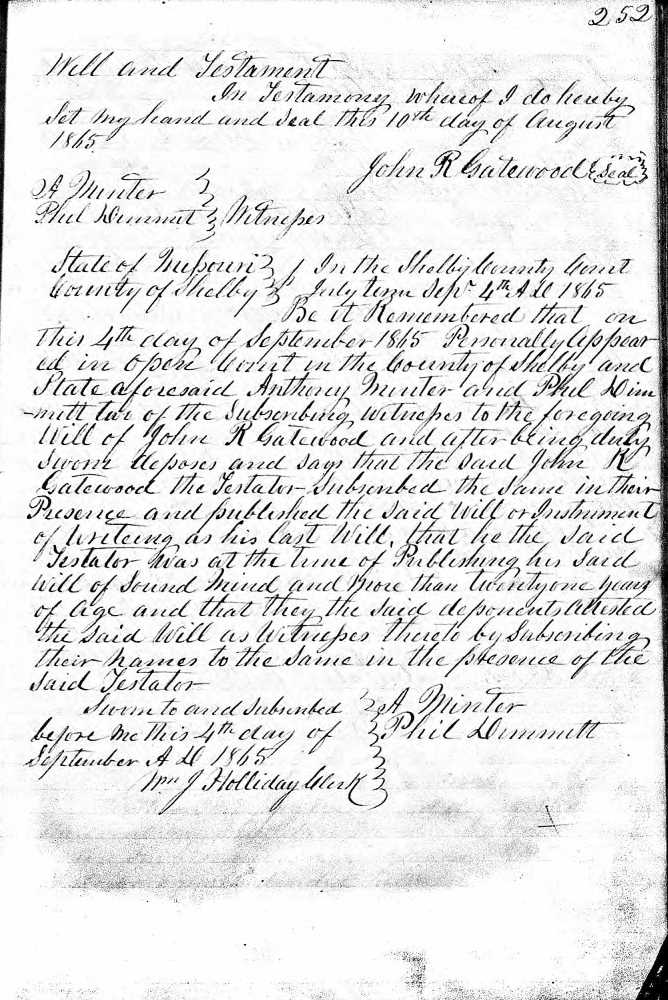 252
Will and Testament
In Testamony whereof I do hereby
Set my hand and Seal this 10th day of August
1865.
John R Gatewood Seal
A Minter
Phil Dimmitt Witnesses
State of Missouri
County of Shelby
In the Shelby County Court
July term Sepr 4th A D 1865
Be it Remembered that on
this 4th day of September 1865 Personally Appear
ed in open Court in the County of Shelby and
State aforesaid Anthony Minter and Phil Dim
-mitt two of the Subscribing Witnesses to the foregoing
Will of John R Gatewood and after being duly
Sworn deposes and says that the said John R
Gatewood the Testator Subscribed the Same in their
Presence and published the Said Will or Instrument
of Writeing as his last Will, that he the Said
Testator was at the time of Publishing his Said
Will of Sound Mind and More than twentyone years
of age and that they the said deponents Attested
the Said Will as Witnesses thereto by Subscribing
their names to the same in the presence of the
Said Testator
Sworn to and Subscribed
before me this 4th day of
September A D 1865
Wm J Holliday Clerk
A Minter
Phil Dimmitt